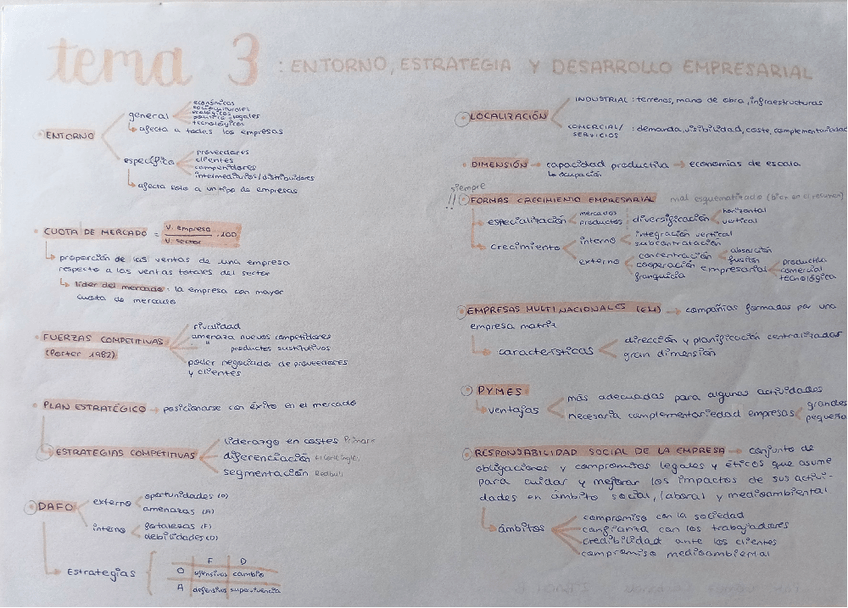 tema 3 : ENTORNO, ESTRATEGIA Y DESARROLLO EMPRESARIAL
ENTORNO
general
económicos
socioculturales
ecológicos
político legales
tecnológicos
afecta a todas las empresas
específico
proveedores
clientes
competidores
intermediarios/distribuidores
afecta solo a un tipo de empresas
CUOTA DE MERCADO = V. empresa / V. sector . 100
proporción de las ventas de una empresa
respecto a las ventas totales del sector
líder del mercado: la empresa con mayor
cuota de mercado
FUERZAS COMPETITIVAS
(Porter 1982)
rivalidad
amenaza nuevos competidores
" productos sustitutivos
poder negociador de proveedores
y clientes
PLAN ESTRATÉGICO → posicionarse con éxito en el mercado
ESTRATEGIAS COMPETITIVAS
liderazgo en costes Primark
diferenciación
segmentación
DAFO
externo
oportunidades (O)
amenazas (A)
interno
fortalezas (F)
debilidades (D)
Estrategias
F D
O ofensivas cambio
A defensivas supervivencia
LOCALIZACIÓN
INDUSTRIAL: terrenos, mano de obra, infraestructuras
COMERCIAL/
SERVICIOS : demanda, visibilidad, coste, complementariedad
DIMENSIÓN → capacidad productiva → economías de escala
ocupación
siempre
!! FORMAS CRECIMIENTO EMPRESARIAL mal esquematizado (bien en el resumen)
especialización
mercados
productos
diversificación
horizontal
vertical
crecimiento
interno
integración vertical
subcontratación
externo
concentración
absorción
fusión
cooperación empresarial
productiva
comercial
tecnológica
franquicia
EMPRESAS MULTINACIONALES → compañías formadas por una
empresa matriz
características
dirección y planificación centralizadas
gran dimensión
PYMES
ventajas
más adecuadas para algunas actividades
necesaria complementariedad empresas
grandes
pequeñas
RESPONSABILIDAD SOCIAL DE LA EMPRESA → conjunto de
obligaciones y compromisos legales y éticos que asume
para cuidar y mejorar los impactos de sus activi-
dades en ámbito social, laboral y medioambiental
ámbitos
compromiso con la sociedad
confianza con los trabajadores
credibilidad ante los clientes
compromiso medioambiental